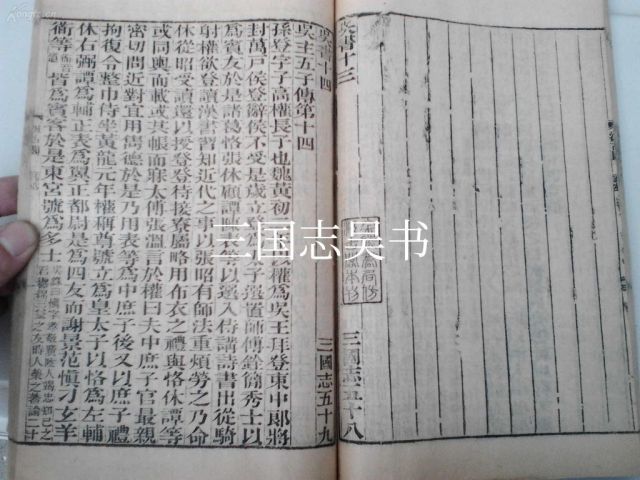 吳書十三
三國志五十八
吳書十四
三國志五十九
吳主五子傳第十四
孫登字子高權長子也魏黃初二權爲吳王拜登東中郎將
封萬戶侯登辭侯不受是歲立登爲太子選置師傅銓簡秀士以
爲賓友於是諸葛恪張休顧譚陳表等以選入侍講詩書出從騎
射權欲登讀漢書習知近代之事以張昭有師法重煩勞之乃命
休從昭受讀還以授登登待接寮屬略用布衣之禮與恪休譚等
或同輿而載或共帳而寐太傅張溫言於權曰夫中庶子官最親
密切問近對宜用雋德於是乃用表等爲中庶子後又以庶子禮
拘復令整巾侍坐黃龍元年權稱尊號立爲皇太子以恪爲左輔
休右弼譚爲輔正表爲翼正都尉是爲四友而謝景范慎刁玄羊
衜等皆爲賓客於是東宮號爲多士
三国志吴书